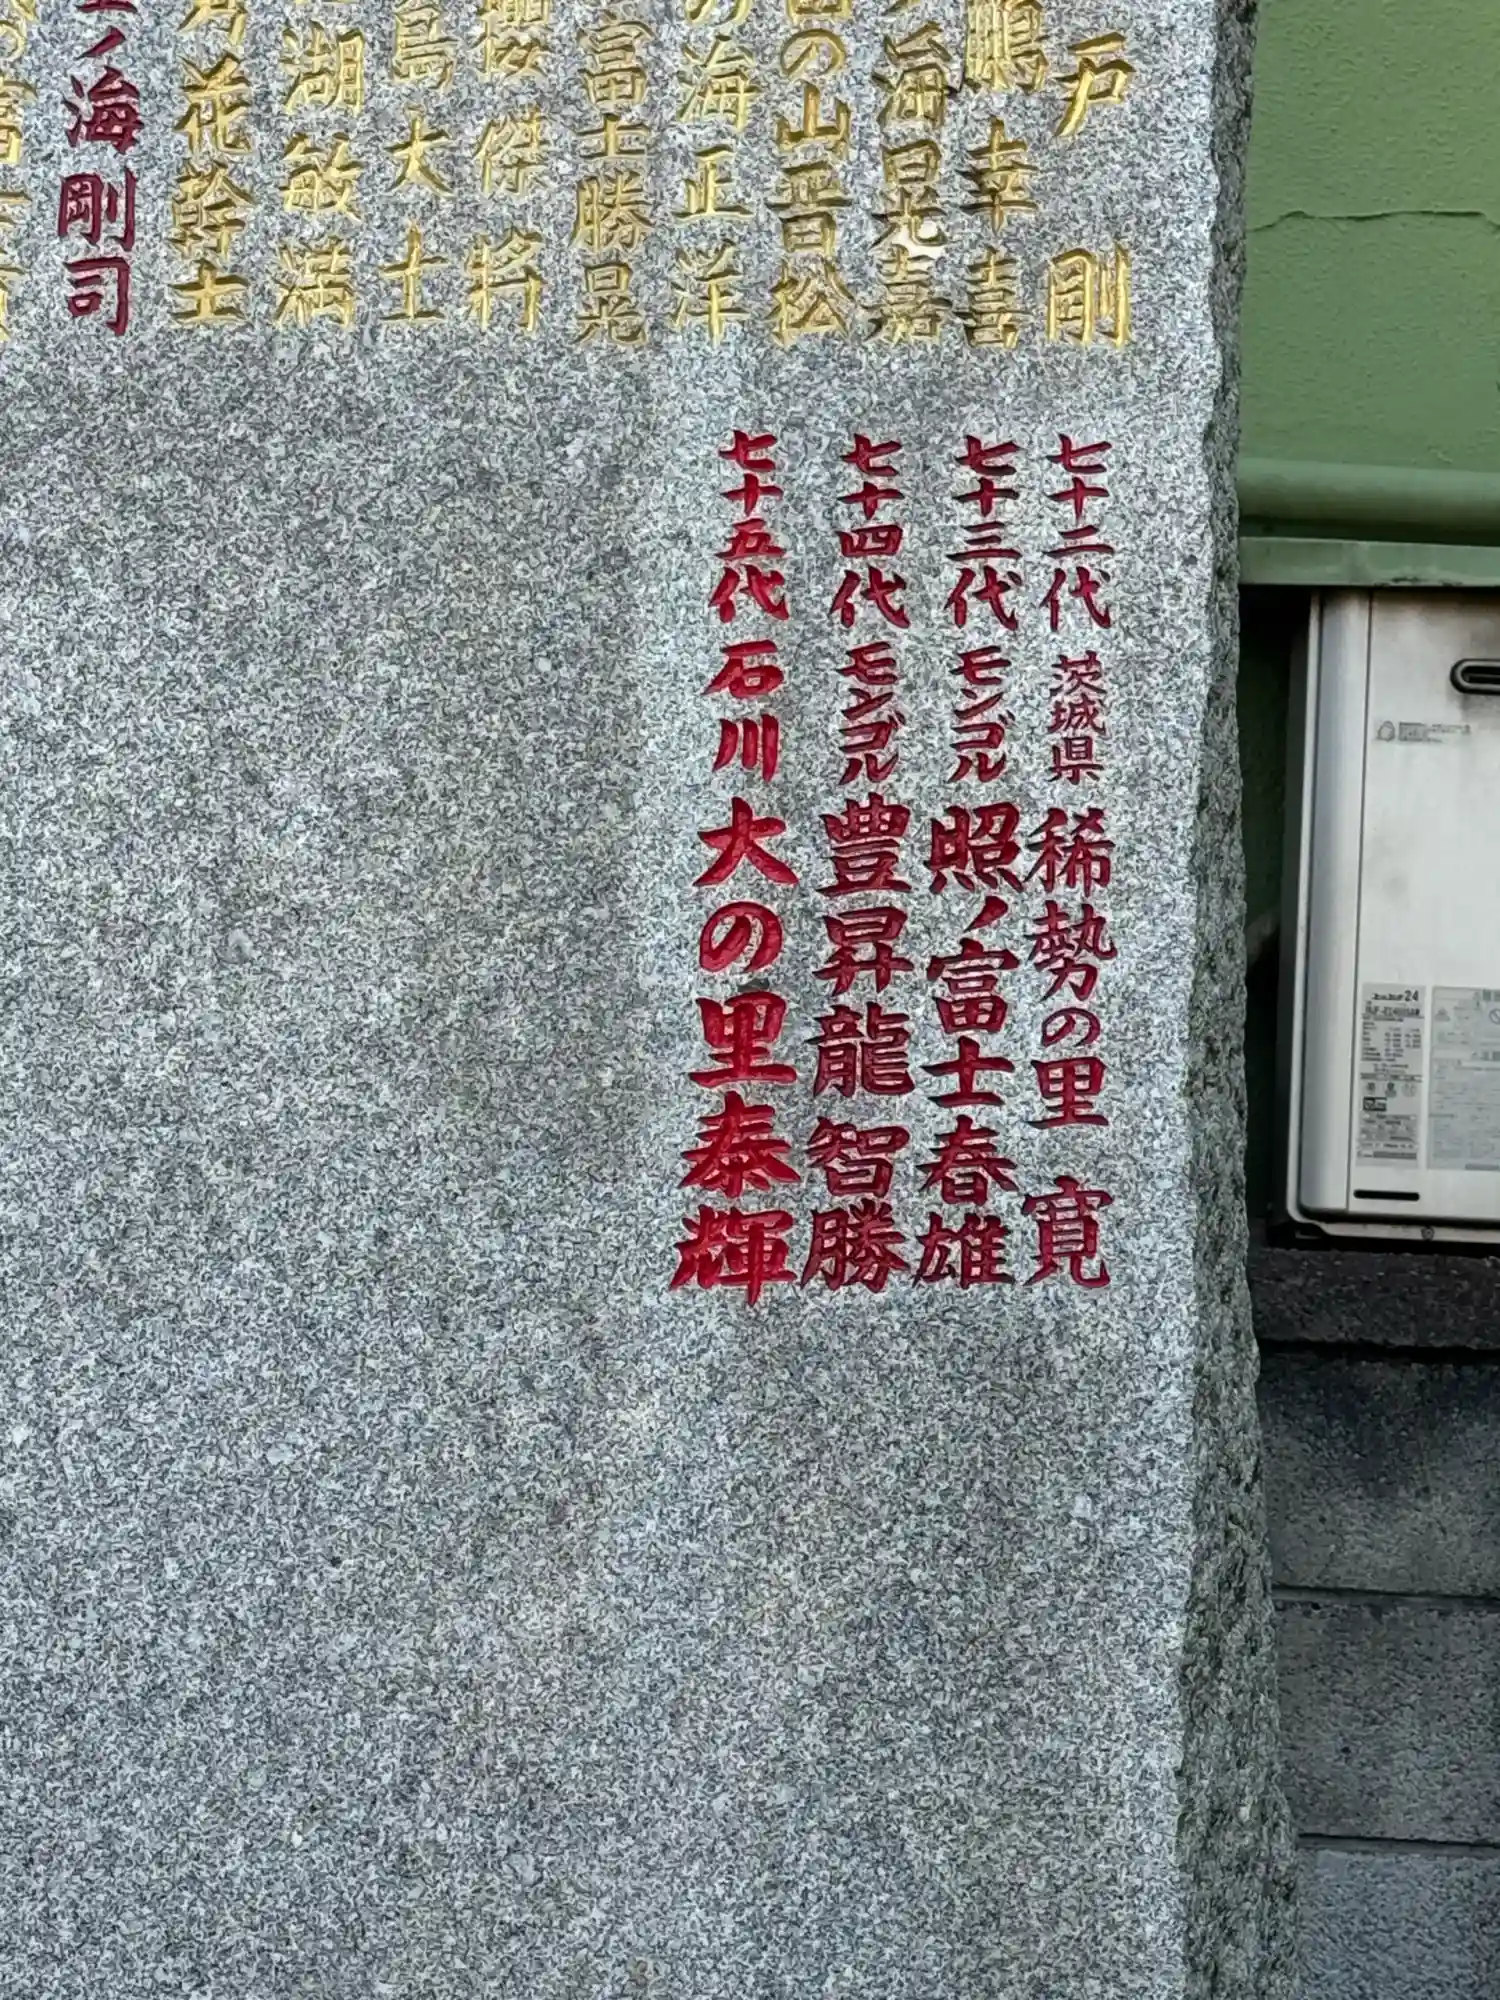 戸剛
鵬幸喜
海晃嘉
の山晋松
の海正洋
富士勝晃
櫻傑将
島大士
湖敏満
花幹士
ノ海剛司
七十二代 茨城県 稀勢の里 寛
七十三代 モンゴル 照ノ富士春雄
七十四代 モンゴル 豊昇龍智勝
七十五代 石川 大の里泰輝
24